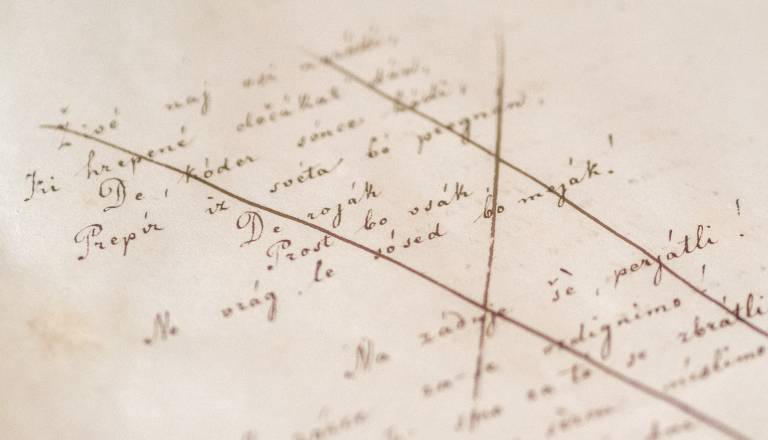 Živé naj vsi naródi,
Ki hrepené dočákat dán,
De, kóder sónce hódi,
Prepír iz svéta bó pregnán,
De roják
Prost bo vsák
Ne vrág, le sósed bo meják!
Na zádnje šè, perjátli!
vzdignimo
smo se zbrátli
mislimo